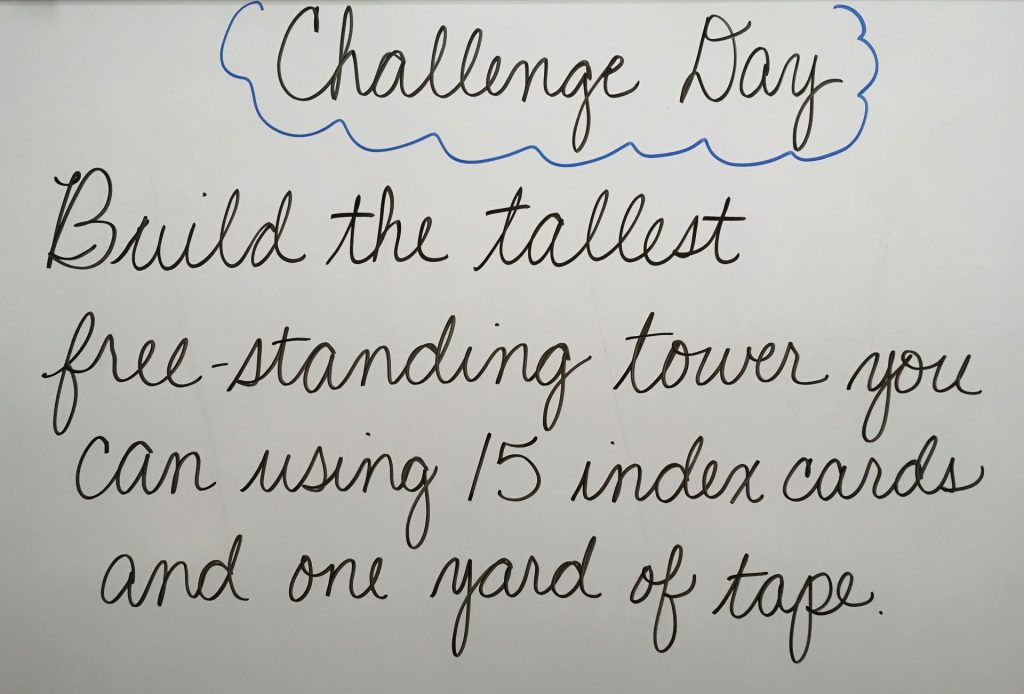 Challenge Day
Build the tallest
free-standing tower you
can using 15 index cards
and one yard of tape.